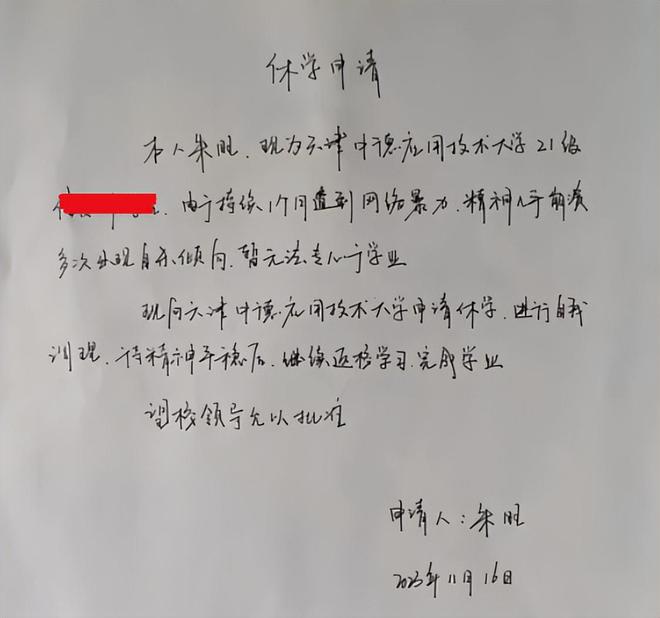 休学申请
本人朱旺，现为天津中德应用技术大学21级
由于持续1个月遭到网络暴力，精神几乎崩溃
多次出现自杀倾向，暂无法专心于学业
现向天津中德应用技术大学申请休学，进行自我
调理，待精神平稳后，继续返校学习，完成学业
望校领导允以批准
申请人：朱旺
2023年11月16日